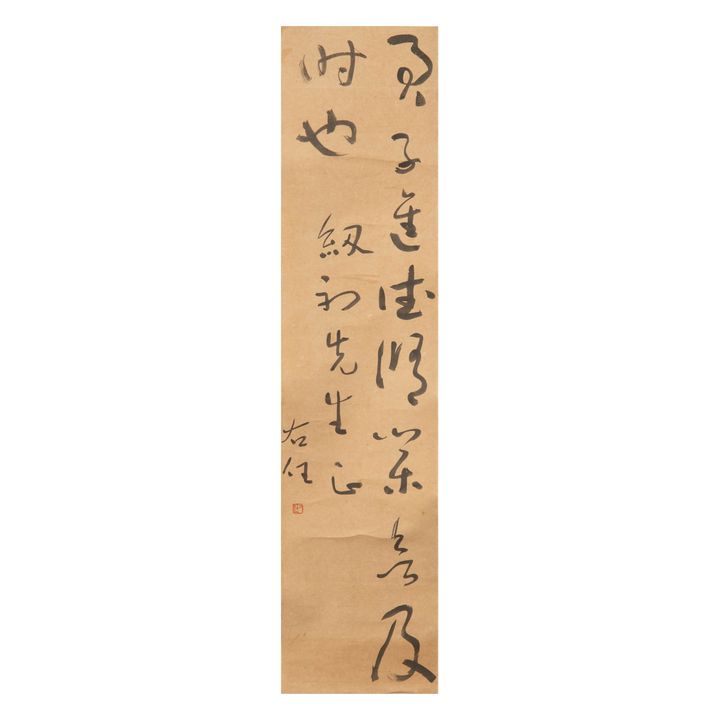 君子進德脩業欲及
時也
紉初先生正
右任